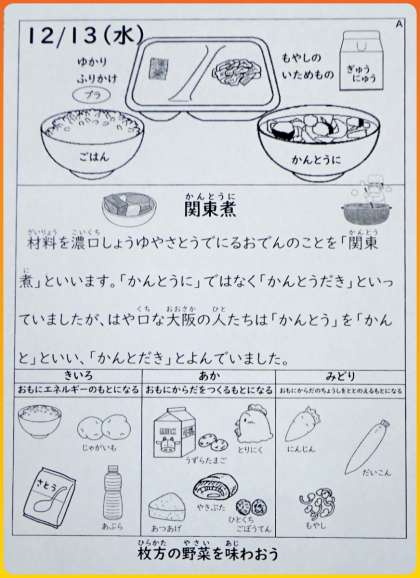 A
12/13(水)
ゆかり
ふりかけ
プラ
もやしの
いためもの
ぎゅう
にゅう
ごはん
かんとうに
かんとうに
関東煮
ざいりょう こいくち かんとう
材料を濃口しょうゆやさとうでにるおでんのことを「関東
に
煮」といいます。「かんとうに」ではなく「かんとうだき」といっ
くち おおさか ひと
ていましたが、はや口な大阪の人たちは「かんとう」を「かん
と」といい、「かんとだき」とよんでいました。
きいろ あか みどり
おもにエネルギーのもとになる おもにからだをつくるもとになる おもにからだのちょうしをととのえるもとになる
じゃがいも
さとう
あぶら
うずらたまご
とりにく
あつあげ
やきぶた
ひとくち
ごぼうてん
にんじん
だいこん
もやし
ひらかた やさい あじ
枚方の野菜を味わおう